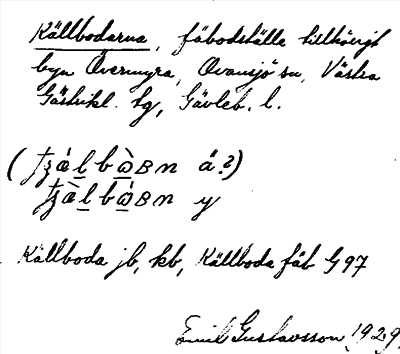 Källbodarna, fäbodställe tillhörigt
byn Övermyra, Ovansjö sn, Västra
Gästrikl. tg, Gävleb. l.
Källboda jb, kb, Källboda fäb G 97
Emil Gustavsson 1929